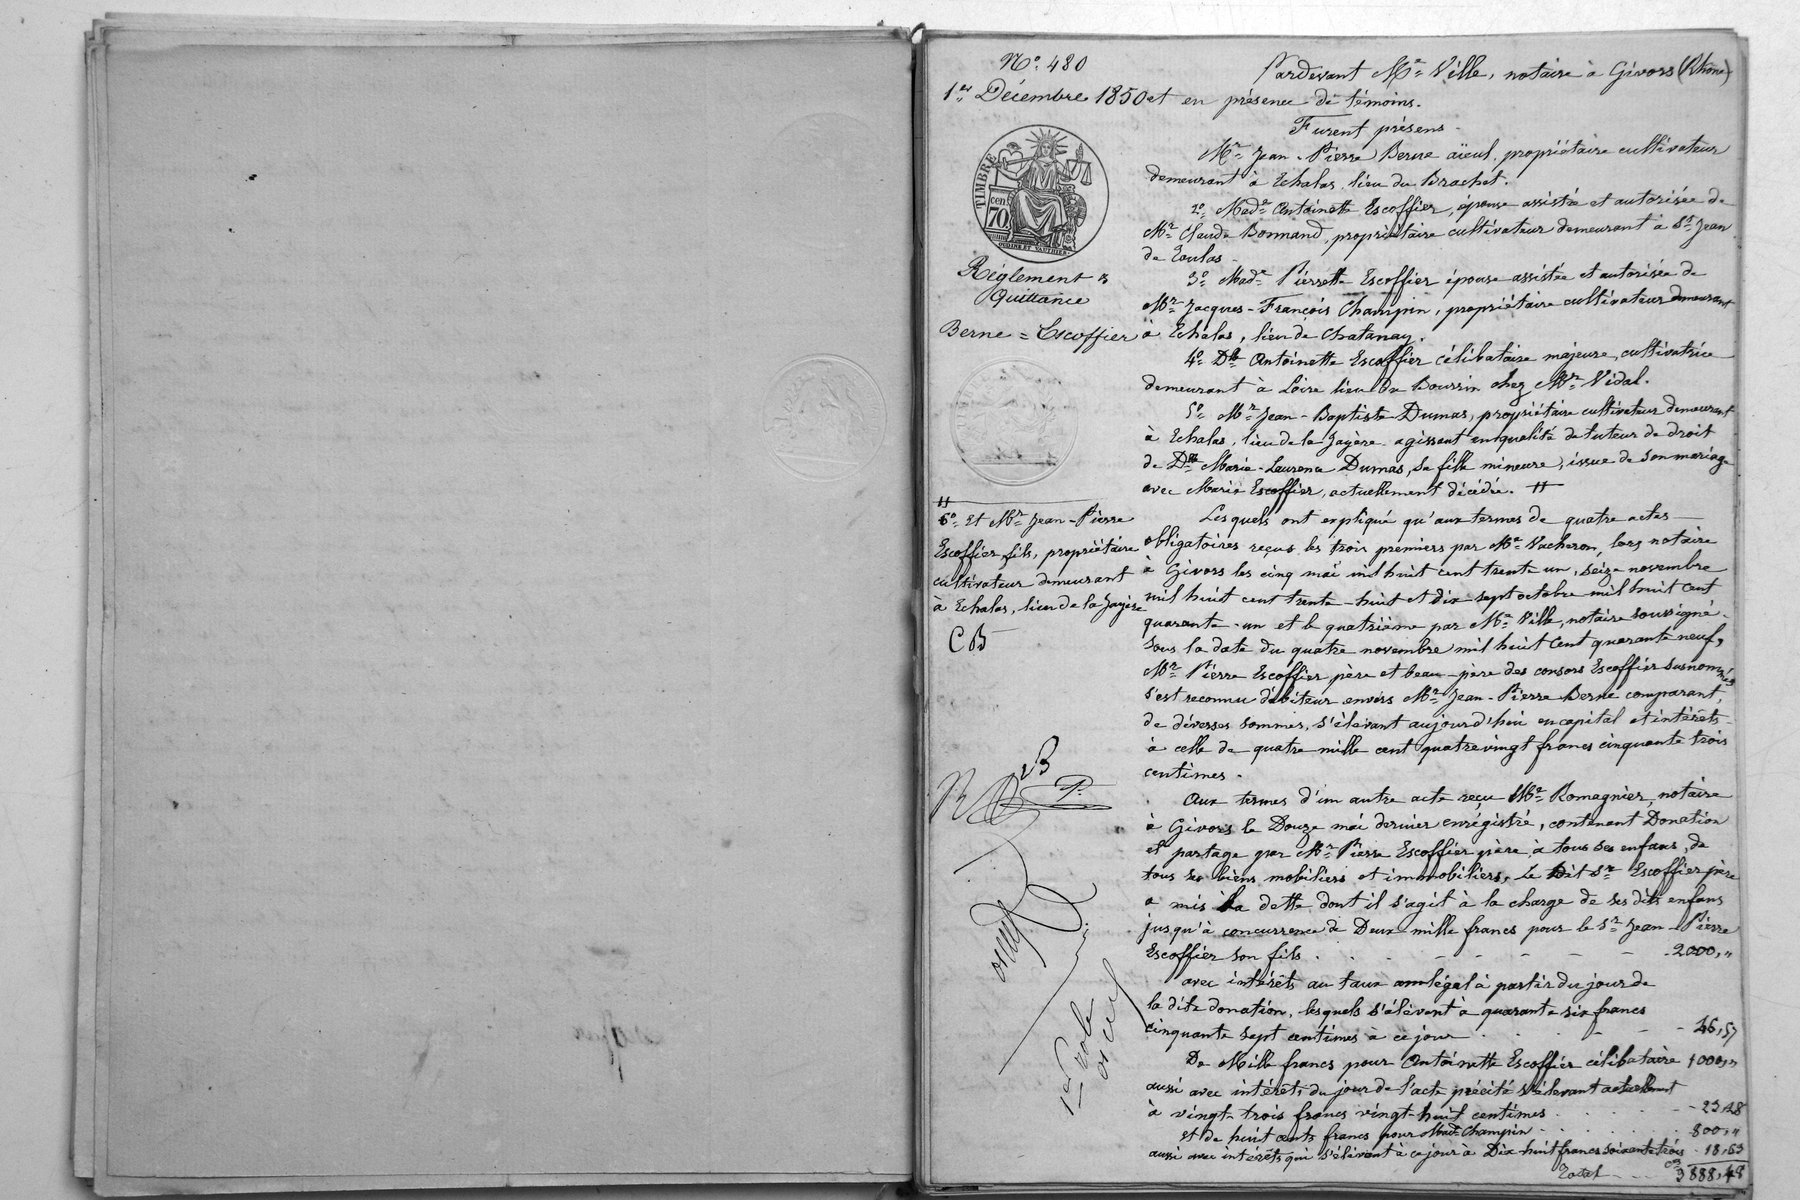 Nº 480
1er Décembre 1850
TIMBRE
cen
70.
Réglement &
Quittance
Berne = Escoffier
Pardevant Me Ville, notaire à Givors (Rhône)
et en présence de témoins.
Furent présens
Mr Jean-Pierre Berne aïeul, propriétaire cultivateur
demeurant à Echalas, lieu du Brachet.
2º Made Antoinette Escoffier, épouse assistée et autorisée de
Mr Claude Bonnand, propriétaire cultivateur demeurant à St Jean
de Toulas.
3º Made Pierrette Escoffier épouse assistée et autorisée de
Mr Jacques-François Champin, propriétaire cultivateur demeurant
à Echalas, lieu de Chatanay.
4º Dlle Antoinette Escoffier célibataire majeure, cultivatrice
demeurant à Loire lieu du Boursin chez Mr Vidal.
5º Mr Jean-Baptiste Dumas, propriétaire cultivateur demeurant
à Echalas, lieu de la Jayère agissant en qualité de tuteur de droit
de Dlle Marie-Laurence Dumas, sa fille mineure, issue de son mariage
avec Marie Escoffier, actuellement décédée. #
#
6º Et Mr Jean-Pierre
Escoffier fils, propriétaire
cultivateur demeurant
à Echalas, lieu de la Jayère
C B
Lesquels ont expliqué qu'aux termes de quatre actes
obligatoires reçus, les trois premiers par Me Vacheron, lors notaire
à Givors les cinq mai mil huit cent trente un, seize novembre
mil huit cent trente-huit et dix sept octobre mil huit cent
quarante-un et le quatrième par Me Ville, notaire soussigné
sous la date du quatre novembre mil huit cent quarante neuf,
Mr Pierre Escoffier père et beau-père des consors Escoffier susnommés
s'est reconnu débiteur envers Mr Jean-Pierre Berne comparant,
de diverses sommes, s'élevant aujourd'hui en capital et intérêts
à celle de quatre mille cent quatrevingt francs cinquante trois
centimes.
Aux termes d'un autre acte reçu Me Romagnier, notaire
à Givors le Douze mai dernier enrégistré, contenant Donation
et partage par Mr Pierre Escoffier père, à tous ses enfans, de
tous ses biens mobiliers et immobiliers, Le Dit Sr Escoffier père
a mis la dette dont il s'agit à la charge de ses dits enfans
jusqu'à concurrence de Deux mille francs pour le Sr Jean-Pierre
Escoffier son fils . . . 2000,"
avec intérêts au taux légal à partir du jour de
la dite donation, lesquels s'élèvent à quarante six francs
cinquante sept centimes à ce jour . . . 46,57
De Mille francs pour Antoinette Escoffier célibataire 1000,"
aussi avec intérêts du jour de l'acte précité s'élevant actuellement
à vingt-trois francs vingt-huit centimes . . . 23,28
et de huit cents francs pour Made Champin . . . 800,"
aussi avec intérêts qui s'élèvent à ce jour à Dix-huit francs soixante trois cmes 18,63
Total . . . 3888,48
1er role